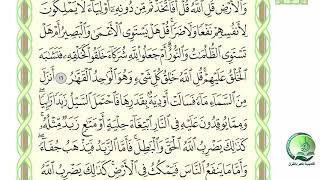 وَٱلۡأَرۡضِ قُلِ ٱللَّهُۚ قُلۡ أَفَٱتَّخَذۡتُم مِّن دُونِهِۦٓ أَوۡلِيَآءَ لَا يَمۡلِكُونَ
لِأَنفُسِهِمۡ نَفۡعٗا وَلَا ضَرّٗاۚ قُلۡ هَلۡ يَسۡتَوِي ٱلۡأَعۡمَىٰ وَٱلۡبَصِيرُ أَمۡ هَلۡ
تَسۡتَوِي ٱلظُّلُمَٰتُ وَٱلنُّورُۗ أَمۡ جَعَلُواْ لِلَّهِ شُرَكَآءَ خَلَقُواْ كَخَلۡقِهِۦ فَتَشَٰبَهَ
ٱلۡخَلۡقُ عَلَيۡهِمۡۚ قُلِ ٱللَّهُ خَٰلِقُ كُلِّ شَيۡءٖ وَهُوَ ٱلۡوَٰحِدُ ٱلۡقَهَّٰرُ ١٦ أَنزَلَ
مِنَ ٱلسَّمَآءِ مَآءٗ فَسَالَتۡ أَوۡدِيَةُۢ بِقَدَرِهَا فَٱحۡتَمَلَ ٱلسَّيۡلُ زَبَدٗا رَّابِيٗاۖ
وَمِمَّا يُوقِدُونَ عَلَيۡهِ فِي ٱلنَّارِ ٱبۡتِغَآءَ حِلۡيَةٍ أَوۡ مَتَٰعٖ زَبَدٞ مِّثۡلُهُۥۚ
كَذَٰلِكَ يَضۡرِبُ ٱللَّهُ ٱلۡحَقَّ وَٱلۡبَٰطِلَۚ فَأَمَّا ٱلزَّبَدُ فَيَذۡهَبُ جُفَآءٗۖ
وَأَمَّا مَا يَنفَعُ ٱلنَّاسَ فَيَمۡكُثُ فِي ٱلۡأَرۡضِۚ كَذَٰلِكَ يَضۡرِبُ ٱللَّهُ